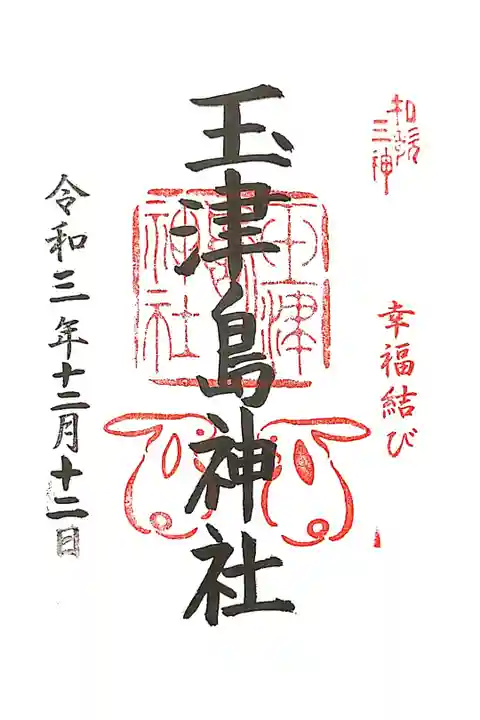 和歌
三神
幸福結び
玉津島神社
玉津
島
神社
令和三年十二月十二日